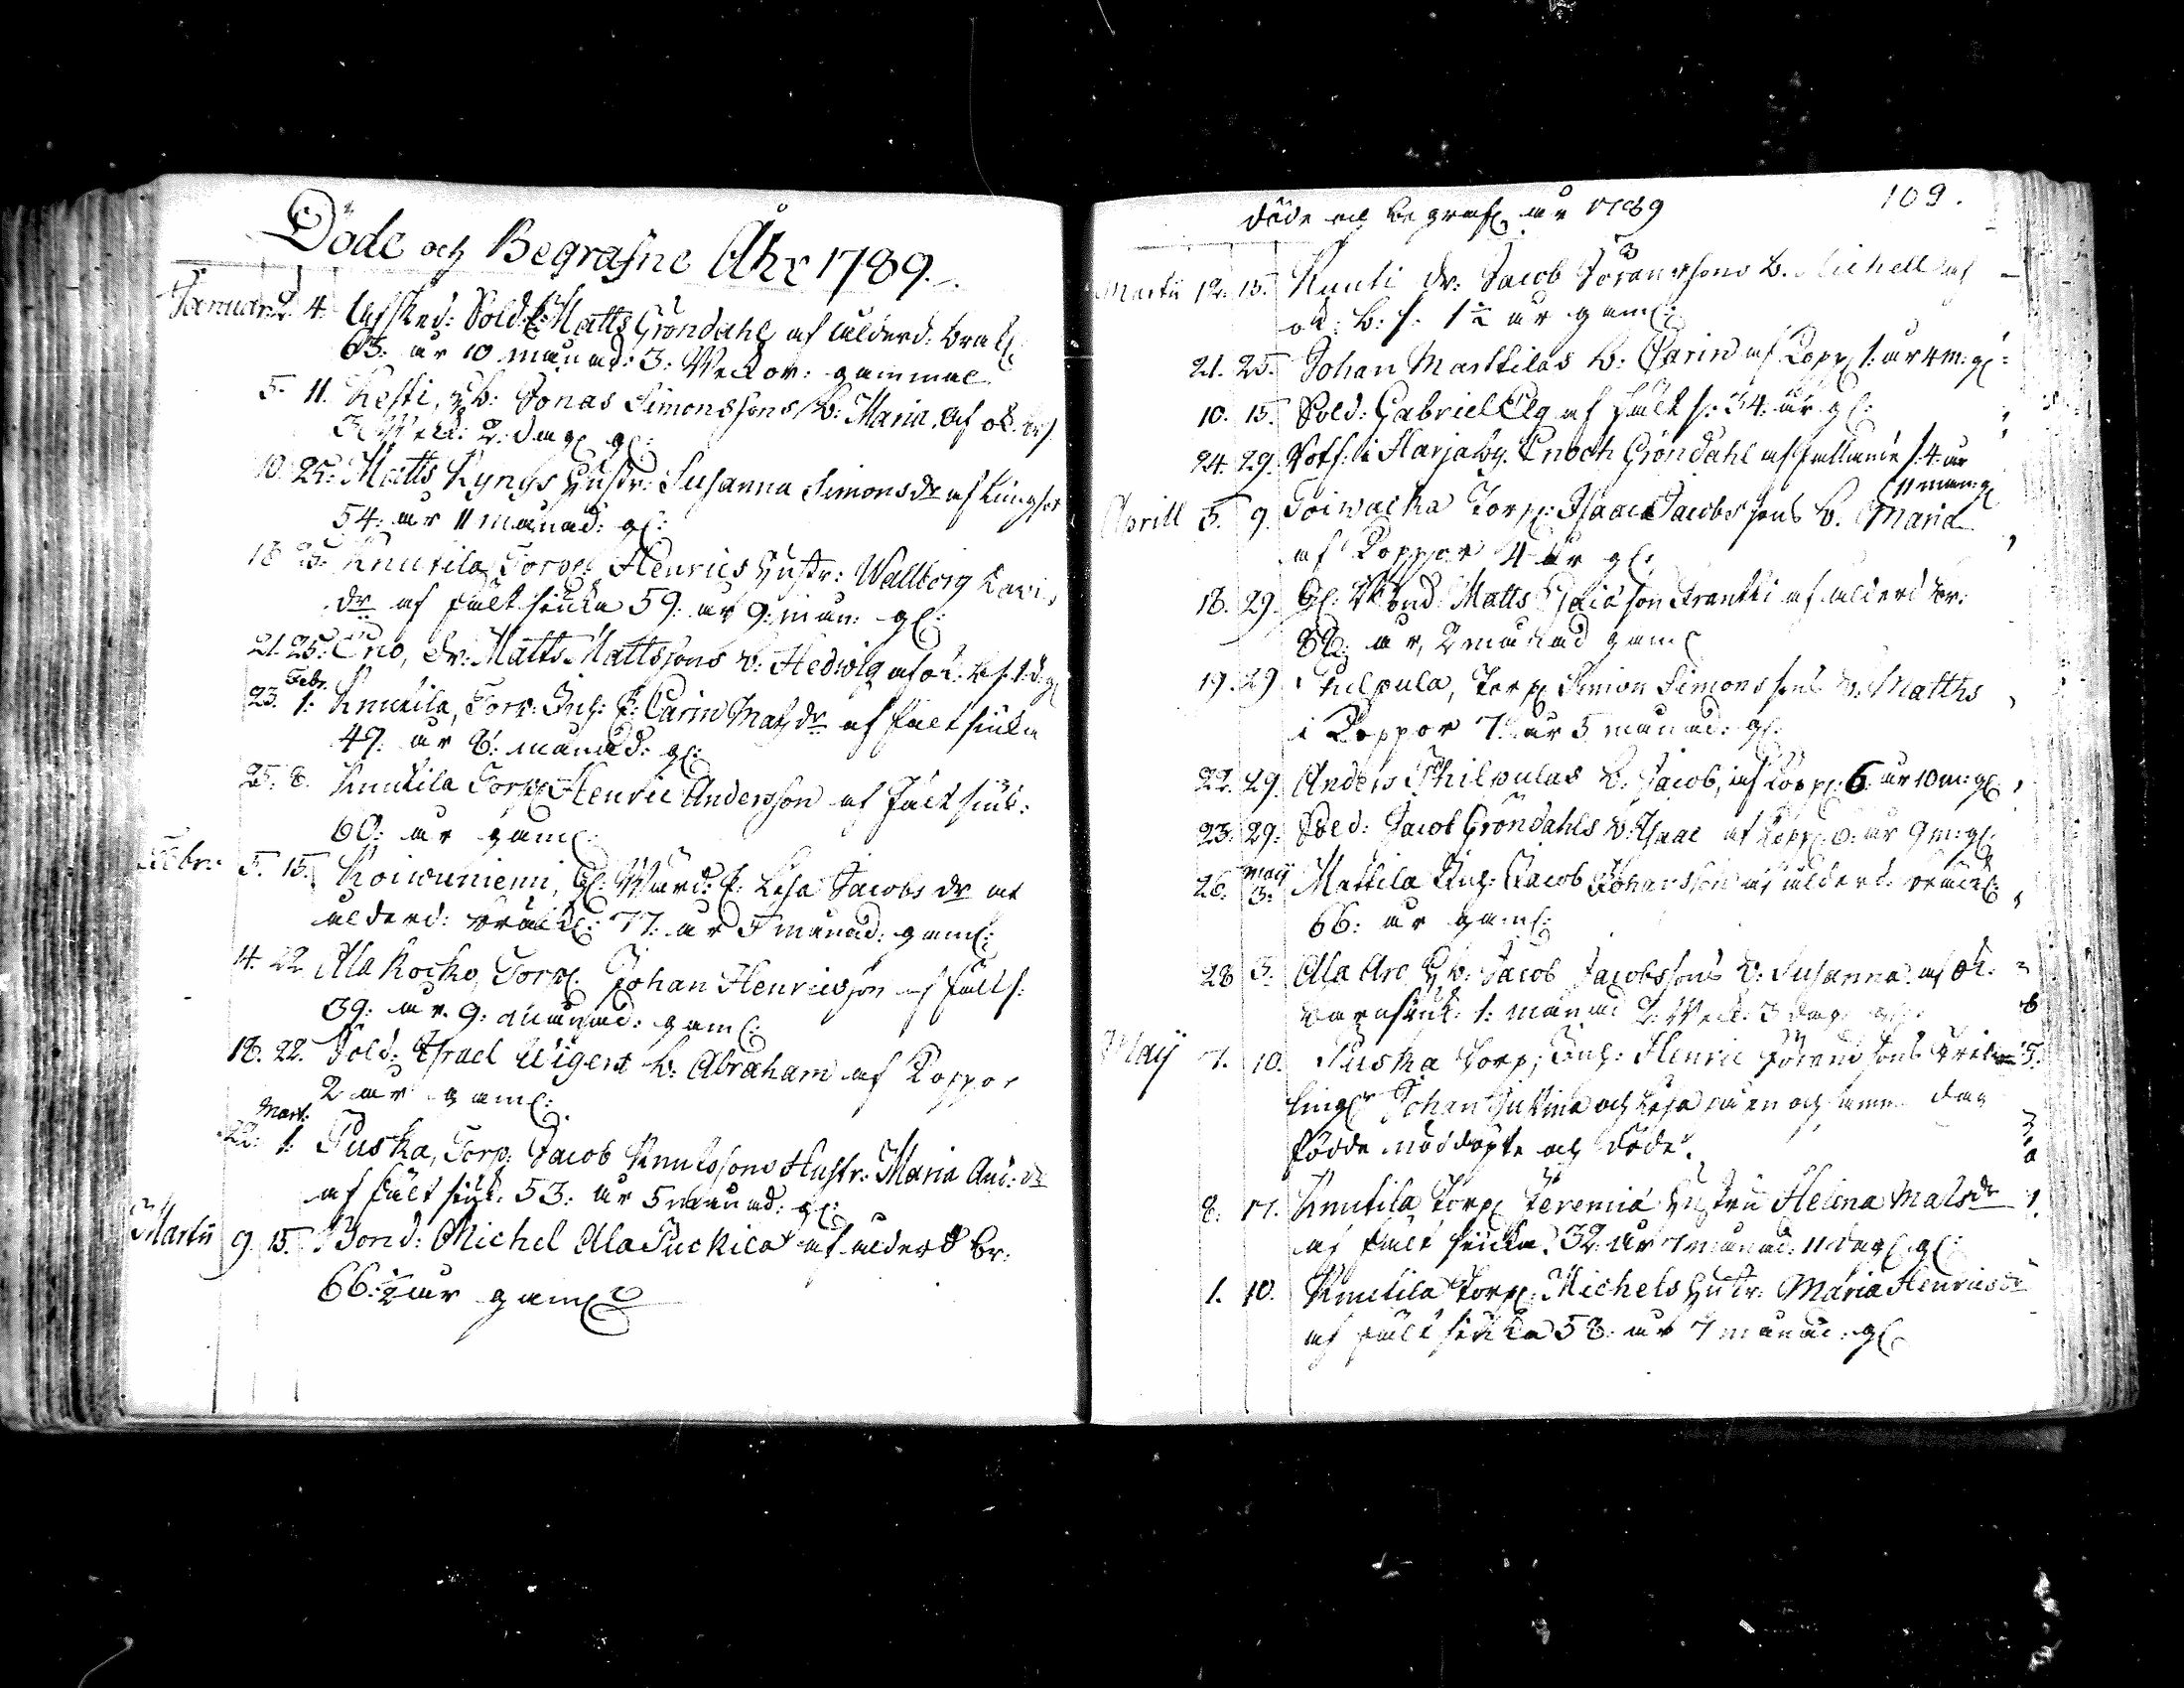 Döde och Begrafne Åhr 1789.
Januarii 2. 4. Afsked: Sold: Matts Gröndahl af ålderd: bräckl:
63: år 10 månad: 3: Weckor: gammal
5. 11. Kesti, Jonas Simonssons b: Maria, af ok. bs
3 Weck: 2: dag: gl:
10. 25: Matts Kyngs Hustr: Susanna Simonsdr af Lungsot
54: år 11 månad: gl:
18 25: Knutila Torp: Henrics Hustr: Wallborg
dr af fältsiuka 59: år 9: mån: gl:
21. 25: Erío, Dr: Matts Mattssons b: Hedwig af ok: bs 1 d: gl
Febr.
23. 1: Knutila, Torp: Inh: E: Carin Matsdr af fältsiuka
49: år 8: månad: gl:
25. 8. Knutila Torp: Henric Andersson af fältsiuk:
60: år gaml:
Febr: 5. 15. Koiwuniemi, Gl: Wärd: E: Lisa Jacobsdr af
ålderd: bräckl: 77: år månad: gaml:
14. 22 Ala Kocko, Torp: Johan Henricsson af fälts:
39: år 9: månad: gaml:
18. 22. Sold: Israel Wigert b: Abraham af Koppor
2 år gaml:
Mart:
22: 1: Puska, Torp: Jacob Knutssons Hustr: Maria And: dr
af fältsiuk: 53: år 5 månad: gl:
Martii 9. 15. Bond: Michel Ala Puckila af ålderd br:
66: ½ år gaml:
Döde och begrafl: år 1789 109.
Martii 12. 15. Kauti dr: Jacob Jöranssons b. Michell af
ok: b: s: 1½ år gaml:
21. 25. Johan Marttilas b: Carin af Kopp: 1: år 4 m: gl:
10. 15. Sold: Gabriel Elg af fält s: 34: år gl:
24. 29. i Harjaby. Enoch Gröndahl af 4: år
11 mån: gl
Aprill 5. 9. Toiwacka Torp: Isaac Jacobssons b. Maria
af Koppor 4 år gl:
18. 29. Gl: Bond: Matts son Frantti af ålderd br:
år, 2 månad gaml
19. 29 Philpula, Torp: Simon Simonssons b. Matths
i Koppor 7: år 5 månad: gl:
22. 29. Anders Philpulas b. Jacob, af Kopp: 6 år 10 m: gl
23. 29. Sold: Jacob Gröndahls b: Isaac af Kopp: år 9 m: gl:
Maij
26. 3: Mattila Inh: Jacob Johansson af ålderd: bräckl:
66: år gaml:
28 3. Ala Aro Jacob Jacobssons b: Susanna af ok:
barnsiuk: 1: månad 2: Weck: 3 dag: gl:
Maij 7. 10. Puska Torp: Inh: Henric Göranssons
lingar Johan och Lisa på en och samma dag
födde nöddöpte och döde.
8. 17. Knutila Torp: Jeremia Hustru Helena Matsdr
af fält siuka. 32 år 7 månad: 11 dag: gl:
1. 10. Knutila Torp: Michels Hustr: Maria Henricsdr
af fält siuka 58: år 7 månad: gl